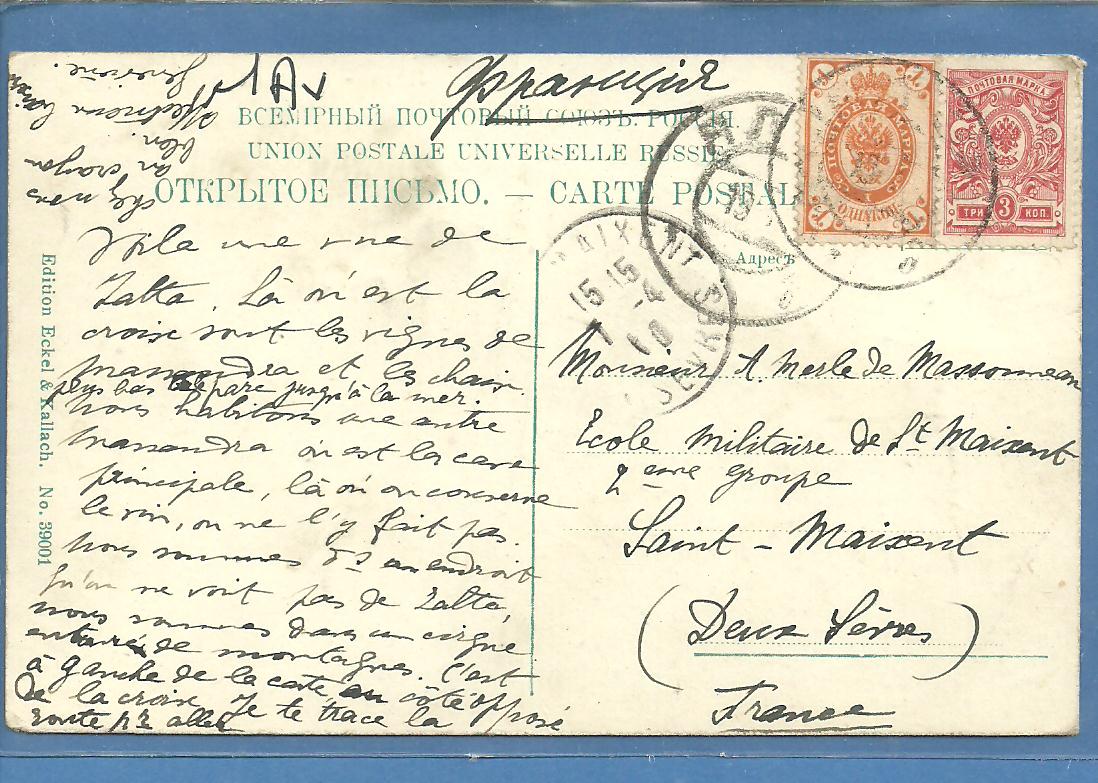 Франція
ВСЕМІРНЫЙ ПОЧТОВЫЙ СОЮЗЪ. РОССІЯ.
UNION POSTALE UNIVERSELLE RUSSIE
ОТКРЫТОЕ ПИСЬМО. — CARTE POSTAL
ПОЧТОВАЯ МАРКА
ТРИ 3 КОП.
ПОЧТОВАЯ МАРКА
1
Адресъ
19
MAIXENT
SEVRES
15 15
7 -4
10
chez nous
au crayon
Voila une vue de
Yalta. Là où est la
croix sont les vignes de
Massandra et les chais.
plus bas le parc jusqu'à la mer.
Nous habitons une autre
Massandra où est la cave
principale, là où on conserve
le vin, on ne l'y fait pas.
Nous sommes ds un endroit
qu'on ne voit pas de Yalta,
nous sommes dans un cirque
entouré de montagnes. C'est
à gauche de la carte au côté opposé
de la croix. Je te trace la
route pr aller
Monsieur A. Merle de Massonneau
Ecole Militaire de St Maixent
2eme groupe
Saint-Maixent
(Deux Sèvres)
France
Edition Eckel & Kallach. No. 39001